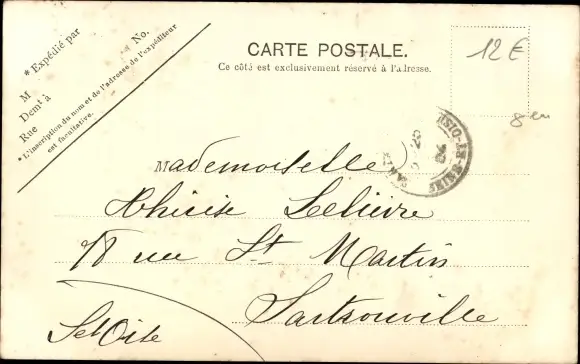 * Expédié par
No.
M
Demt à
Rue
* L'inscription du nom et de l'adresse de l'expéditeur
est facultative.
CARTE POSTALE.
Ce côté est exclusivement réservé à l'adresse.
12 €
SEINE-ET-OISE
Mademoiselle
Lelièvre
18 rue St Martin
Sartrouville
S et Oise